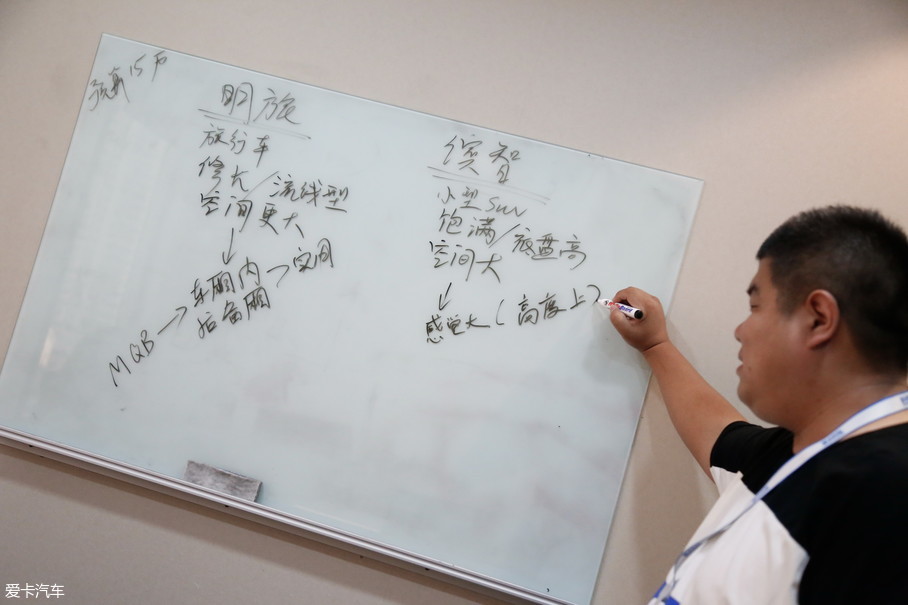 明旅
旅行车
修长/流线型
空间更大
↓
MQB→车厢内→空间
后备厢
缤智
小型SUV
饱满/底盘高
空间大
↓
感觉大(高度上)
爱卡汽车